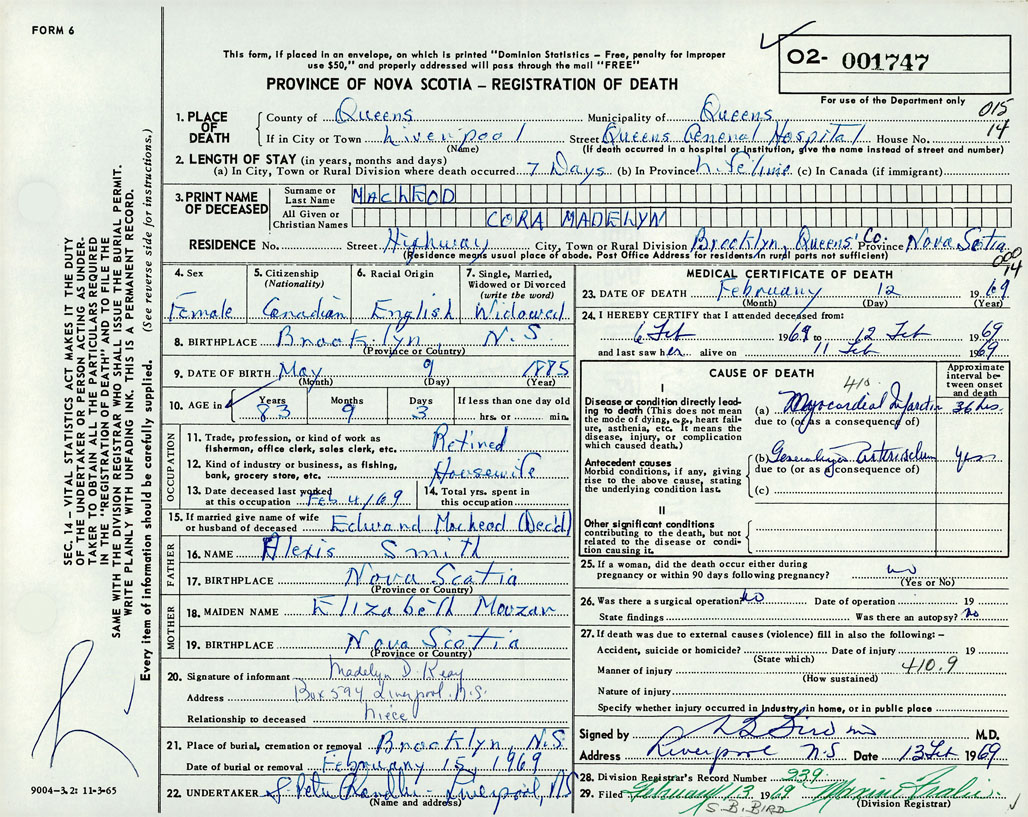 FORM 6
O2- 001747
This form, if placed in an envelope, on which is printed "Dominion Statistics – Free, penalty for improper
use $50," and properly addressed will pass through the mail "FREE"
PROVINCE OF NOVA SCOTIA – REGISTRATION OF DEATH
For use of the Department only
015
14
1. PLACE OF DEATH County of Queens Municipality of Queens
If in City or Town Liverpool Street Queens General Hospital House No.
(Name) (If death occurred in a hospital or institution, give the name instead of street and number)
2. LENGTH OF STAY (in years, months and days)
(a) In City, Town or Rural Division where death occurred 7 Days (b) In Province Lifetime (c) In Canada (if immigrant)
3. PRINT NAME OF DECEASED Surname or Last Name MacLEOD
All Given or Christian Names CORA MADELYN
RESIDENCE No. Street Highway City, Town or Rural Division Brooklyn, Queens Co. Province Nova Scotia
(Residence means usual place of abode. Post Office Address for residents in rural parts not sufficient)
000
14
4. Sex 5. Citizenship (Nationality) 6. Racial Origin 7. Single, Married, Widowed or Divorced (write the word)
Female Canadian English Widowed
8. BIRTHPLACE Brooklyn, N.S.
(Province or Country)
9. DATE OF BIRTH May 9 1885
(Month) (Day) (Year)
10. AGE in Years Months Days If less than one day old
83 9 3 hrs. or min.
OCCUPATION
11. Trade, profession, or kind of work as fisherman, office clerk, sales clerk, etc. Retired
12. Kind of industry or business, as fishing, bank, grocery store, etc. Housewife
13. Date deceased last worked at this occupation Feb 4/69
14. Total yrs. spent in this occupation
15. If married give name of wife or husband of deceased Edward MacLeod (Dec'd)
FATHER
16. NAME Alexis Smith
17. BIRTHPLACE Nova Scotia
(Province or Country)
MOTHER
18. MAIDEN NAME Elizabeth
19. BIRTHPLACE Nova Scotia
(Province or Country)
20. Signature of informant Madelyn D. Keay
Address Box 594 Liverpool N.S.
Relationship to deceased niece
21. Place of burial, cremation or removal Brooklyn, N.S
Date of burial or removal February 15, 1969
22. UNDERTAKER Liverpool, NS
(Name and address)
MEDICAL CERTIFICATE OF DEATH
23. DATE OF DEATH February 12 1969
(Month) (Day) (Year)
24. I HEREBY CERTIFY that I attended deceased from:
6 Feb 1969 to 12 Feb 1969
and last saw her alive on 11 Feb 1969
CAUSE OF DEATH
Approximate interval between onset and death
I
410
Disease or condition directly leading to death (This does not mean the mode of dying, e.g., heart failure, asthenia, etc. It means the disease, injury, or complication which caused death.)
(a) Myocardial Infarction 36 hrs.
due to (or as a consequence of)
Antecedent causes
Morbid conditions, if any, giving rise to the above cause, stating the underlying condition last.
(b) Generalized Arteriosclerosis yrs
due to (or as a consequence of)
(c)
II
Other significant conditions contributing to the death, but not related to the disease or condition causing it.
25. If a woman, did the death occur either during pregnancy or within 90 days following pregnancy? no
(Yes or No)
26. Was there a surgical operation? no Date of operation 19
State findings Was there an autopsy? no
27. If death was due to external causes (violence) fill in also the following: –
Accident, suicide or homicide? Date of injury 19
(State which)
Manner of injury 410.9
(How sustained)
Nature of injury
Specify whether injury occurred in industry, in home, or in public place
Signed by Bird MD M.D.
Address Liverpool N S Date 13 Feb 1969
28. Division Registrar's Record Number 939
29. Filed February 13 1969
S. B. BIRD
(Division Registrar)
SEC. 14 – VITAL STATISTICS ACT MAKES IT THE DUTY
OF THE UNDERTAKER OR PERSON ACTING AS UNDER-
TAKER TO OBTAIN ALL THE PARTICULARS REQUIRED
IN THE "REGISTRATION OF DEATH" AND TO FILE THE
SAME WITH THE DIVISION REGISTRAR WHO SHALL ISSUE THE BURIAL PERMIT.
WRITE PLAINLY WITH UNFADING INK. THIS IS A PERMANENT RECORD.
Every item of information should be carefully supplied. (See reverse side for instructions.)
9004-3.2: 11-3-65